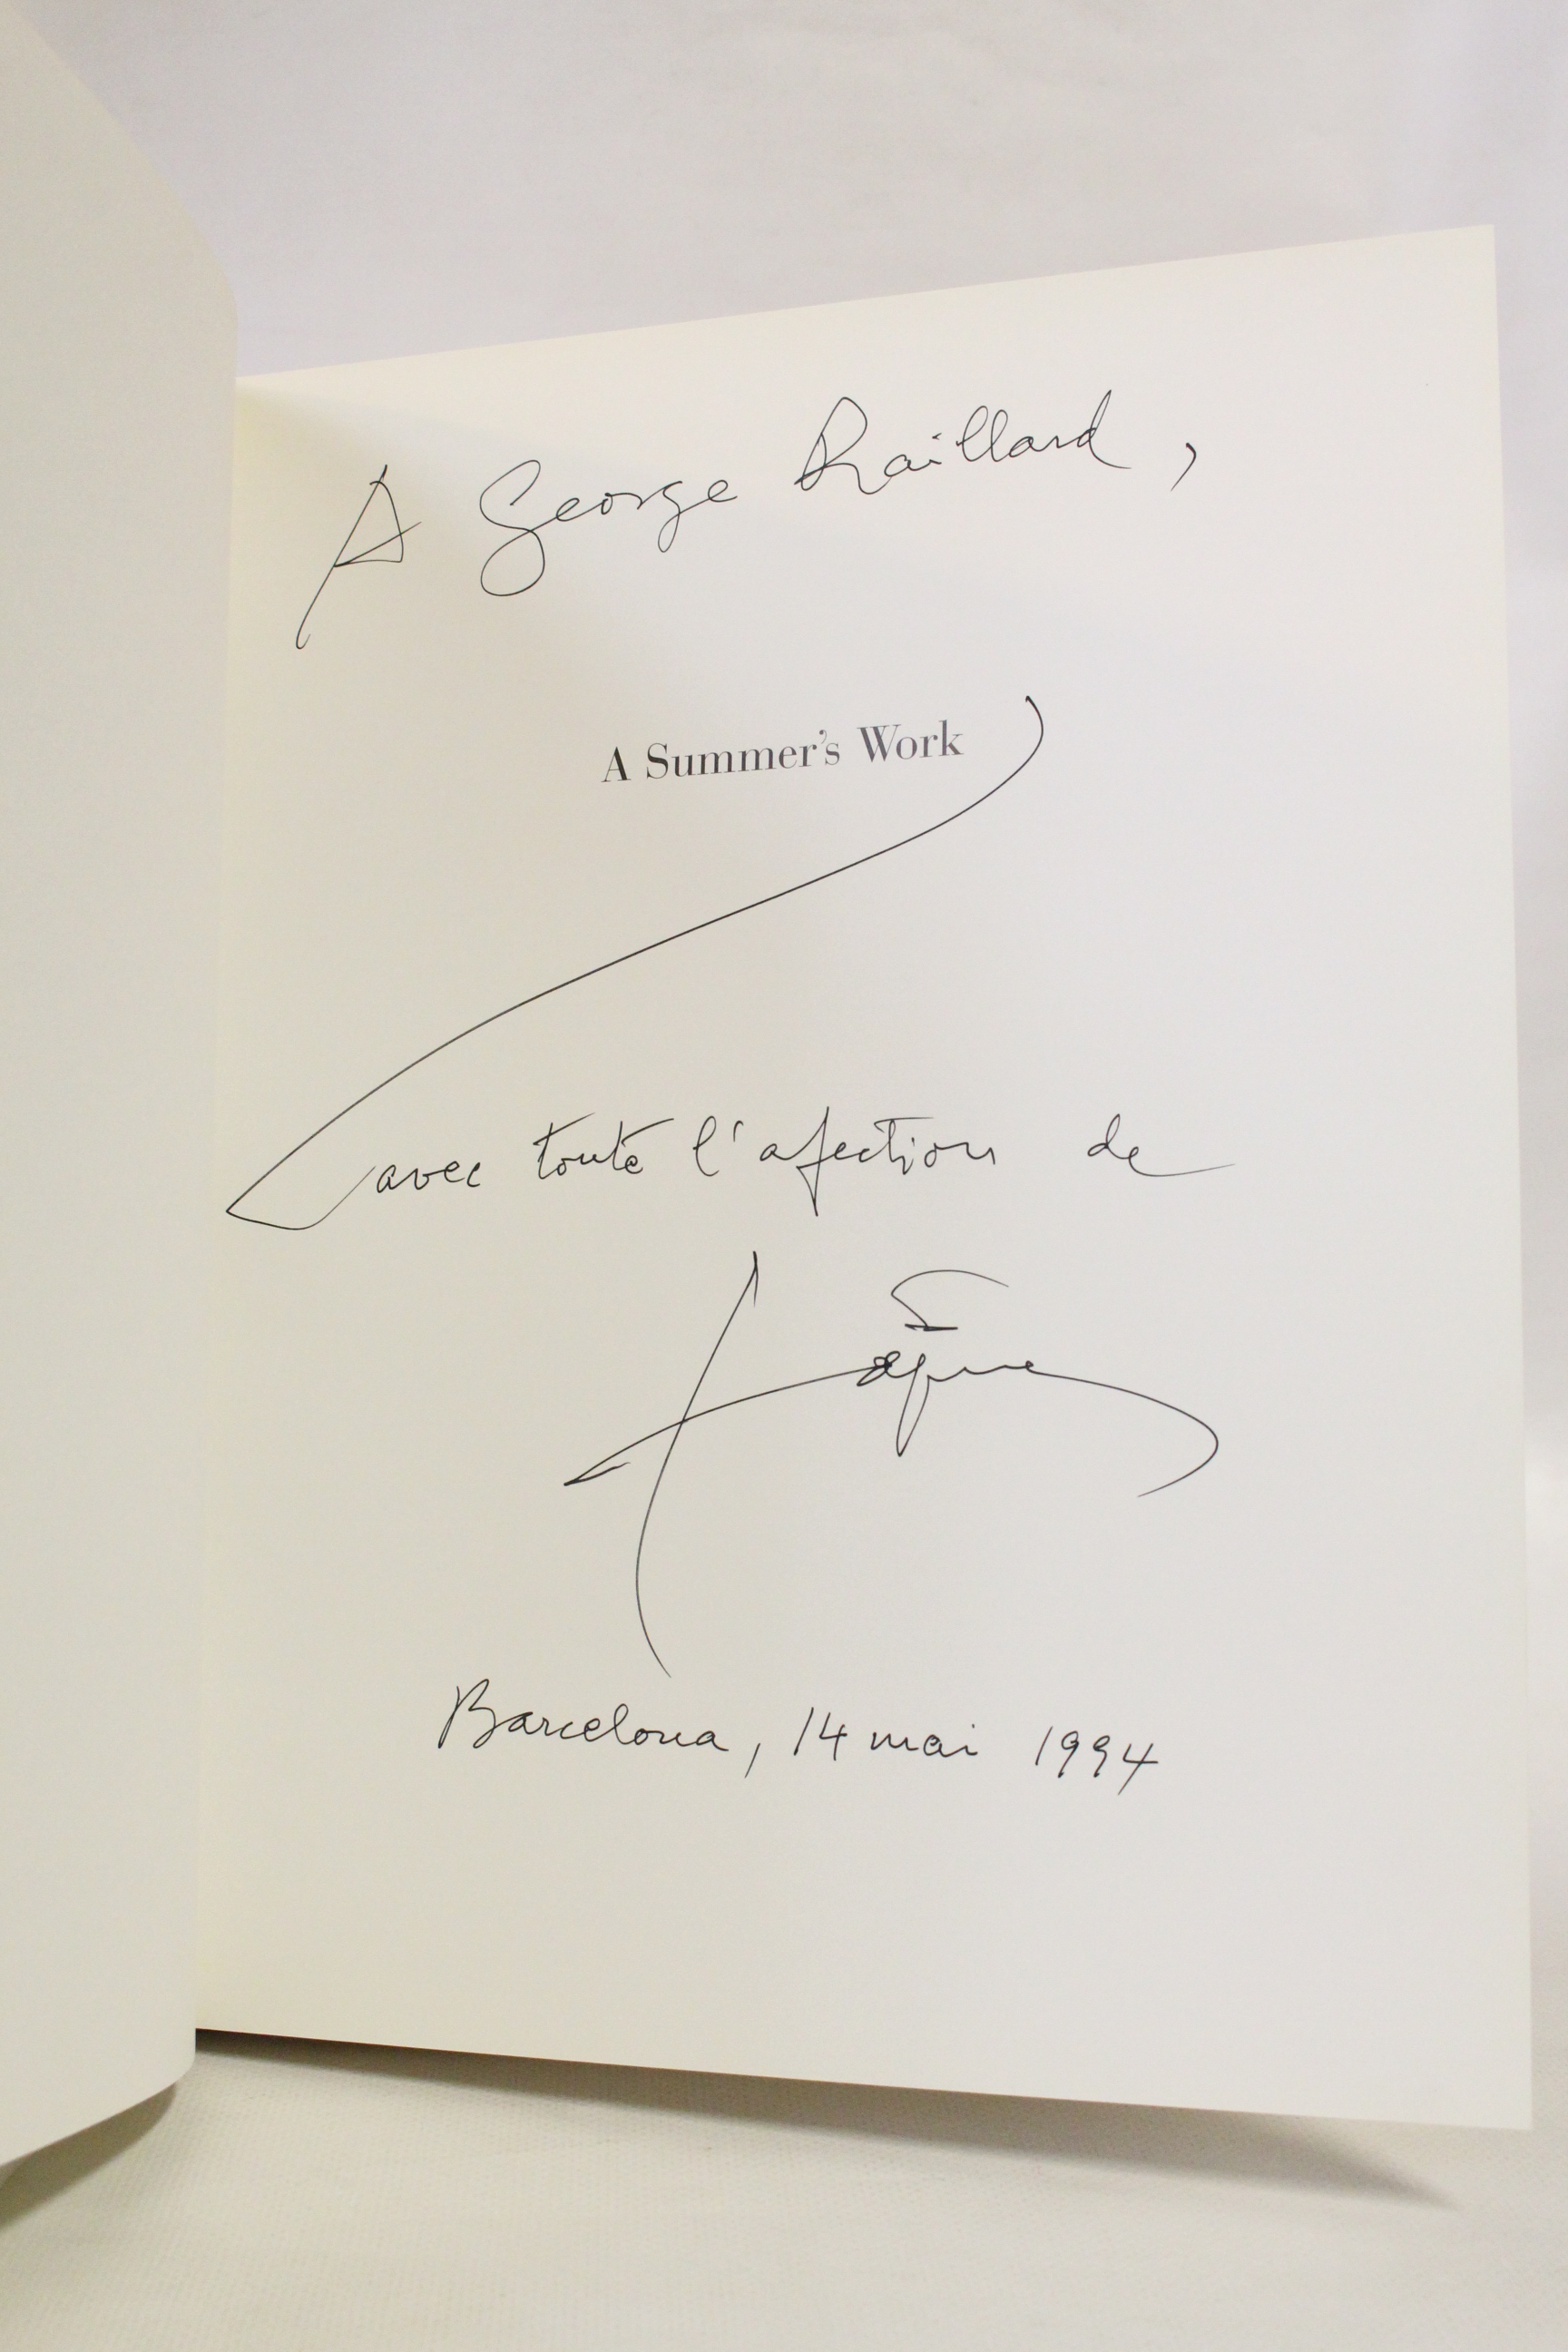 A George Raillard,
A Summer's Work
avec toute l'afection de
Tàpies
Barcelona, 14 mai 1994